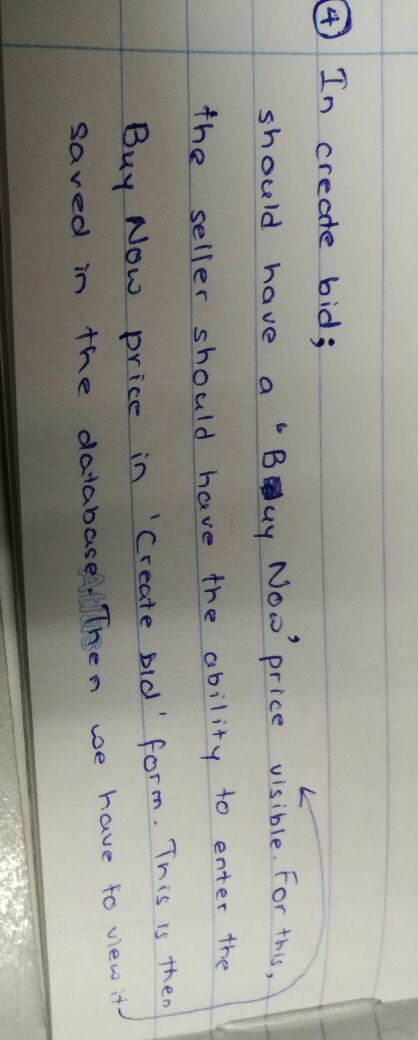 ④ In create bid;
should have a "Buy Now' price visible. For this,
the seller should have the ability to enter the
Buy Now price in 'Create bid' form. This is then
saved in the database. Then we have to view it
Atlas